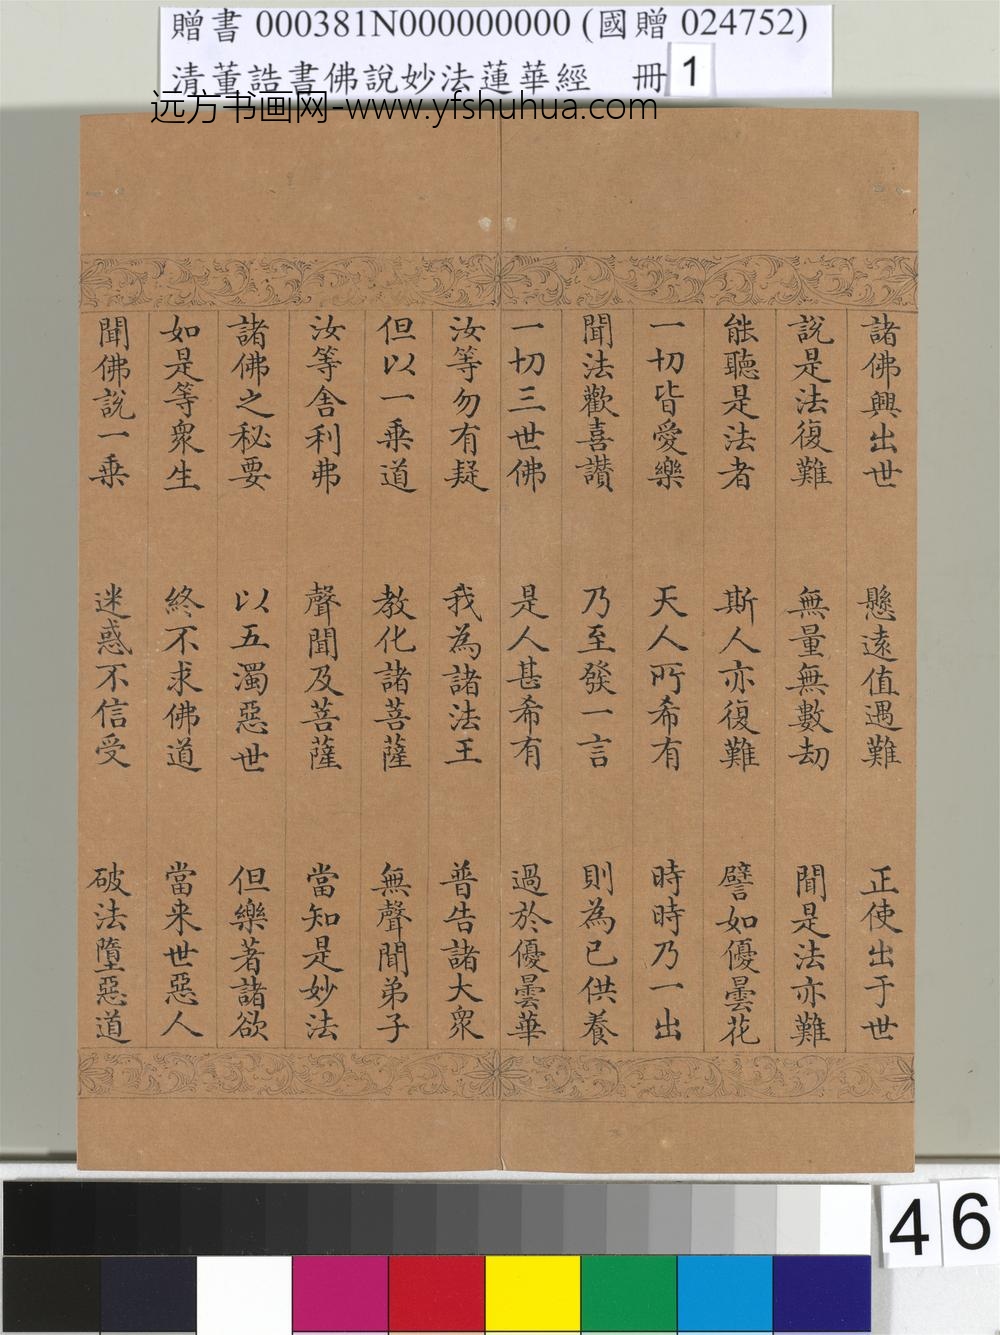 贈書 000381N000000000 (國贈 024752)
清董誥書佛說妙法蓮華經 冊 1
远方书画网-www.yfshuhua.com
諸佛興出世 懸遠值遇難 正使出于世
說是法復難 無量無數劫 聞是法亦難
能聽是法者 斯人亦復難 譬如優曇花
一切皆愛樂 天人所希有 時時乃一出
聞法歡喜讚 乃至發一言 則為已供養
一切三世佛 是人甚希有 過於優曇華
汝等勿有疑 我為諸法王 普告諸大眾
但以一乗道 教化諸菩薩 無聲聞弟子
汝等舎利弗 聲聞及菩薩 當知是妙法
諸佛之秘要 以五濁惡世 但樂著諸欲
如是等眾生 終不求佛道 當来世惡人
聞佛說一乗 迷惑不信受 破法墮惡道
46